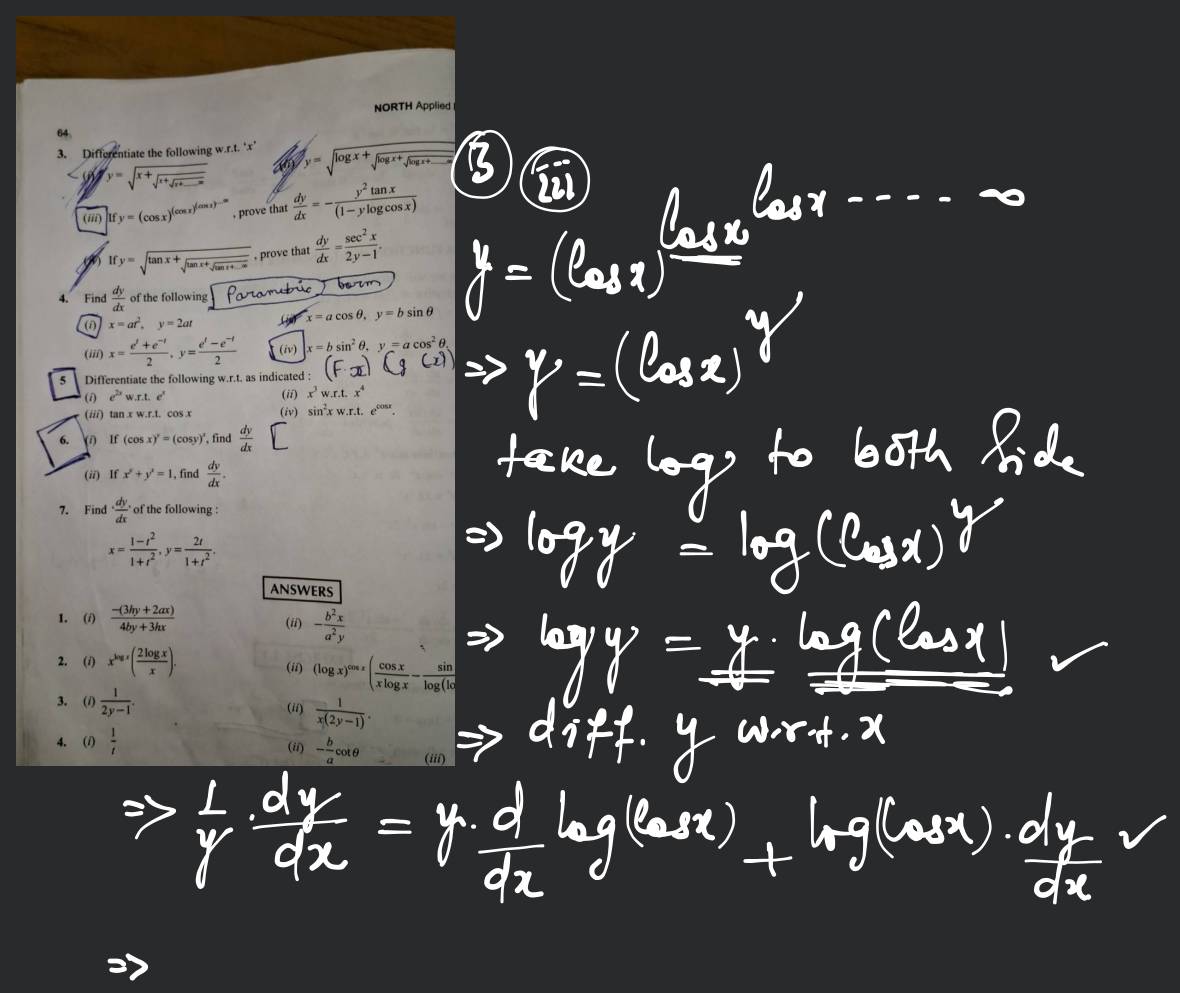 NORTH Applied
64
3. Differentiate the following w.r.t. 'x'
(i) y = √(x + √(x + √(x + ......∞
(ii) y = √(log x + √(log x + √(log x + ......
(iii) If y = (cos x)^(cos x)^(cos x)^....∞, prove that dy/dx = − y² tan x/(1 − y log cos x)
(iv) If y = √(tan x + √(tan x + √(tan x + ...∞, prove that dy/dx = sec² x/(2y − 1).
4. Find dy/dx of the following Parametric form
(i) x = at², y = 2at
(ii) x = a cos θ, y = b sin θ
(iii) x = (e^t + e^−t)/2, y = (e^t − e^−t)/2
(iv) x = b sin² θ, y = a cos² θ.
5 Differentiate the following w.r.t. as indicated : (F x) (g (x))
(i) e^2x w.r.t. e^x
(ii) x³ w.r.t. x⁴
(iii) tan x w.r.t. cos x
(iv) sin²x w.r.t. e^cosx.
6. (i) If (cos x)^y = (cosy)^x, find dy/dx [
(ii) If x^y + y^x = 1, find dy/dx.
7. Find 'dy/dx' of the following :
x = (1 − t²)/(1 + t²), y = 2t/(1 + t²).
ANSWERS
1. (i) −(3hy + 2ax)/(4by + 3hx)
(ii) − b²x/a²y
2. (i) x^log x (2 log x/x).
(ii) (log x)^cos x (cos x/(x log x) − sin/log(lo
3. (i) 1/(2y−1).
(ii) 1/(x(2y−1)).
4. (i) 1/t
(ii) −b/a cot θ
(iii)
3 iii
y = (Cos x)^Cos x^Cos x ----- ∞
=> y = (Cos x)^y
take log to both Side
=> log y = log (Cos x)^y
=> log y = y . log (Cos x) ✓
=> diff. y w.r.t. x
=> 1/y . dy/dx = y . d/dx log (Cos x) + log (Cos x) . dy/dx ✓
=>